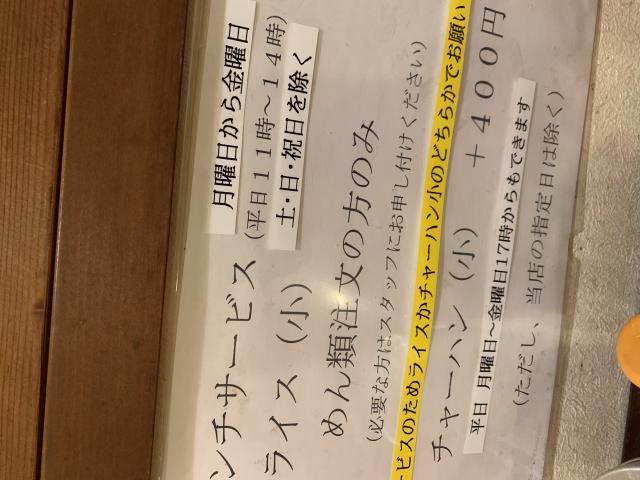 ンチサービス 月曜日から金曜日
(平日11時〜14時)
ライス(小) 土・日・祝日を除く
めん類注文の方のみ
(必要な方はスタッフにお申し付けください)
ービスのためライスかチャーハン小のどちらかでお願い
チャーハン(小) +400円
平日 月曜日〜金曜日17時からもできます
(ただし、当店の指定日は除く)